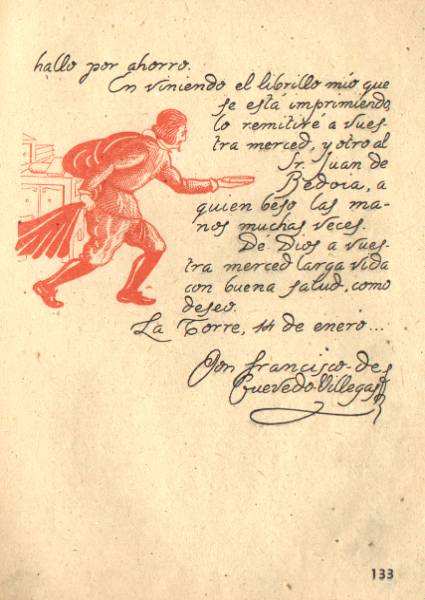 hallo por ahorro.
En viniendo el librillo mío que
se está imprimiendo,
lo remitiré a vues-
tra merced, y otro al
Sr. Juan de
Bedoia, a
quien beso las ma-
nos muchas veces.
Dé Dios a vues-
tra merced larga vida
con buena salud, como
deseo.
La Torre, 14 de enero...
Don Francisco de
Quevedo Villegas
133